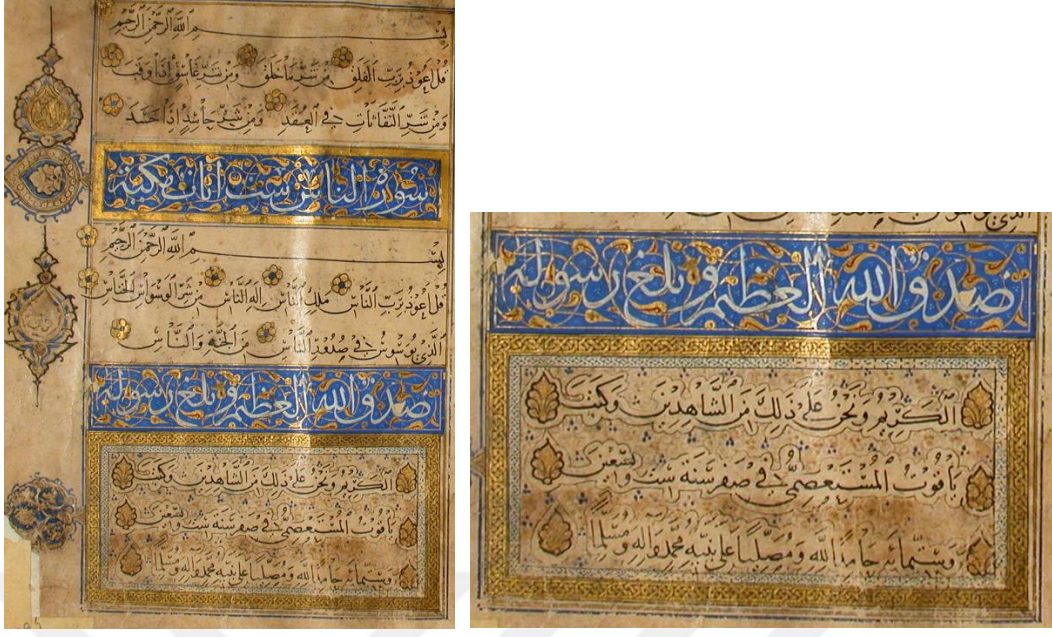 بسم الله الرحمن الرحيم
قل أعوذ برب الفلق من شر ما خلق ومن شر غاسق إذا وقب
ومن شر النفاثات في العقد ومن شر حاسد إذا حسد
سورة الناس ست آيات مكية
بسم الله الرحمن الرحيم
قل أعوذ برب الناس ملك الناس إله الناس من شر الوسواس الخناس
الذي يوسوس في صدور الناس من الجنة والناس
صدق الله العظيم وبلغ رسوله
الكريم ونحن على ذلك من الشاهدين وكتب
ياقوت المستعصمي في صفر سنة ست وتسعين
وستمائة حامدا لله ومصليا على نبيه محمد وآله ومسلما
صدق الله العظيم وبلغ رسوله
الكريم ونحن على ذلك من الشاهدين وكتب
ياقوت المستعصمي في صفر سنة ست وتسعين
وستمائة حامدا لله ومصليا على نبيه محمد وآله ومسلما